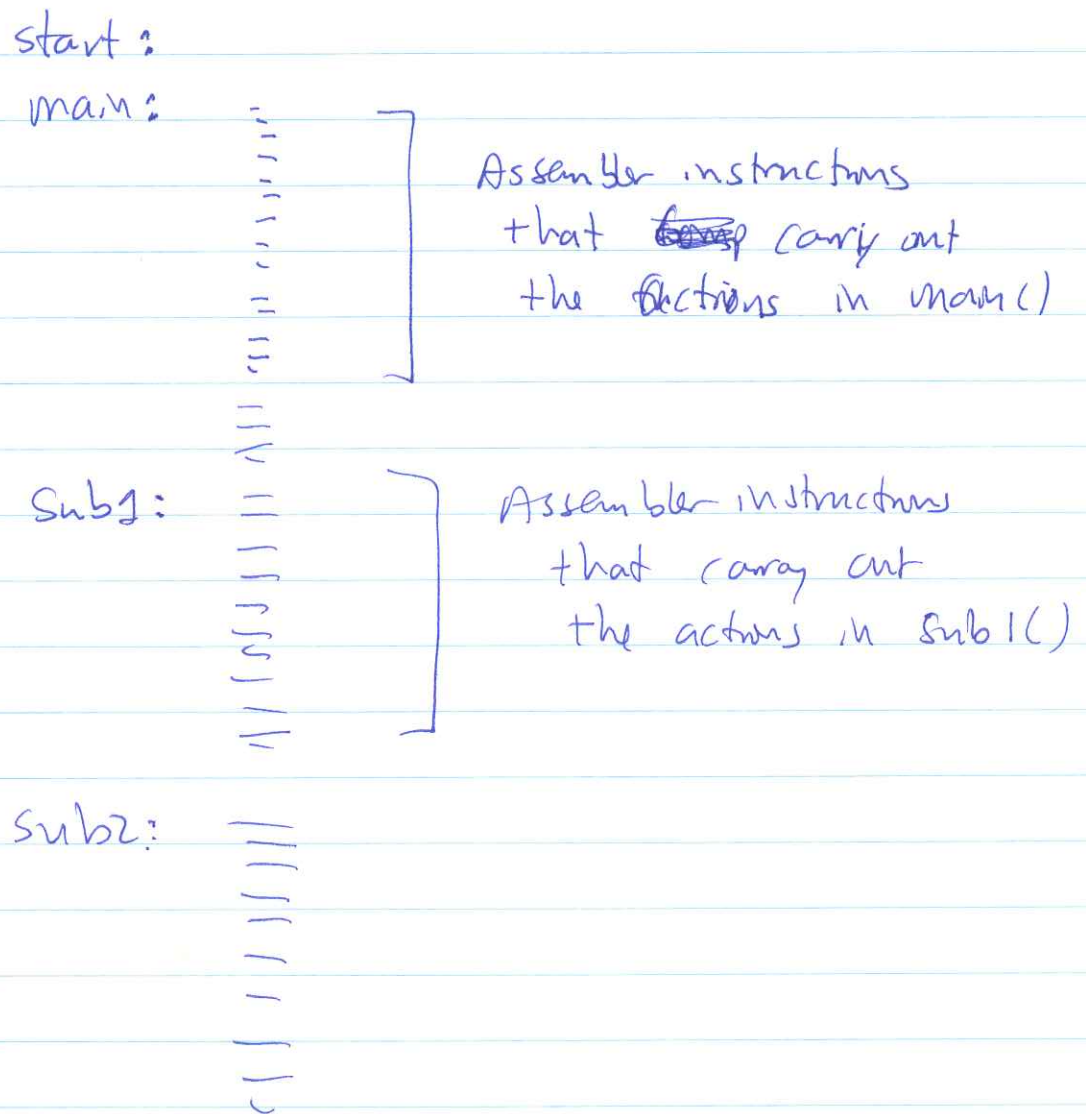 start:
main:
Assembler instructions
that carry out
the actions in main()
Sub1:
Assembler instructions
that carry out
the actions in sub1()
Sub2: